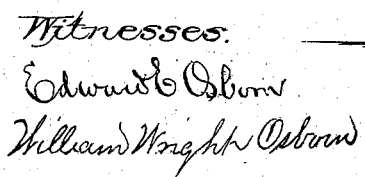 Witnesses.
Edward E Osborn
William Wright Osborn